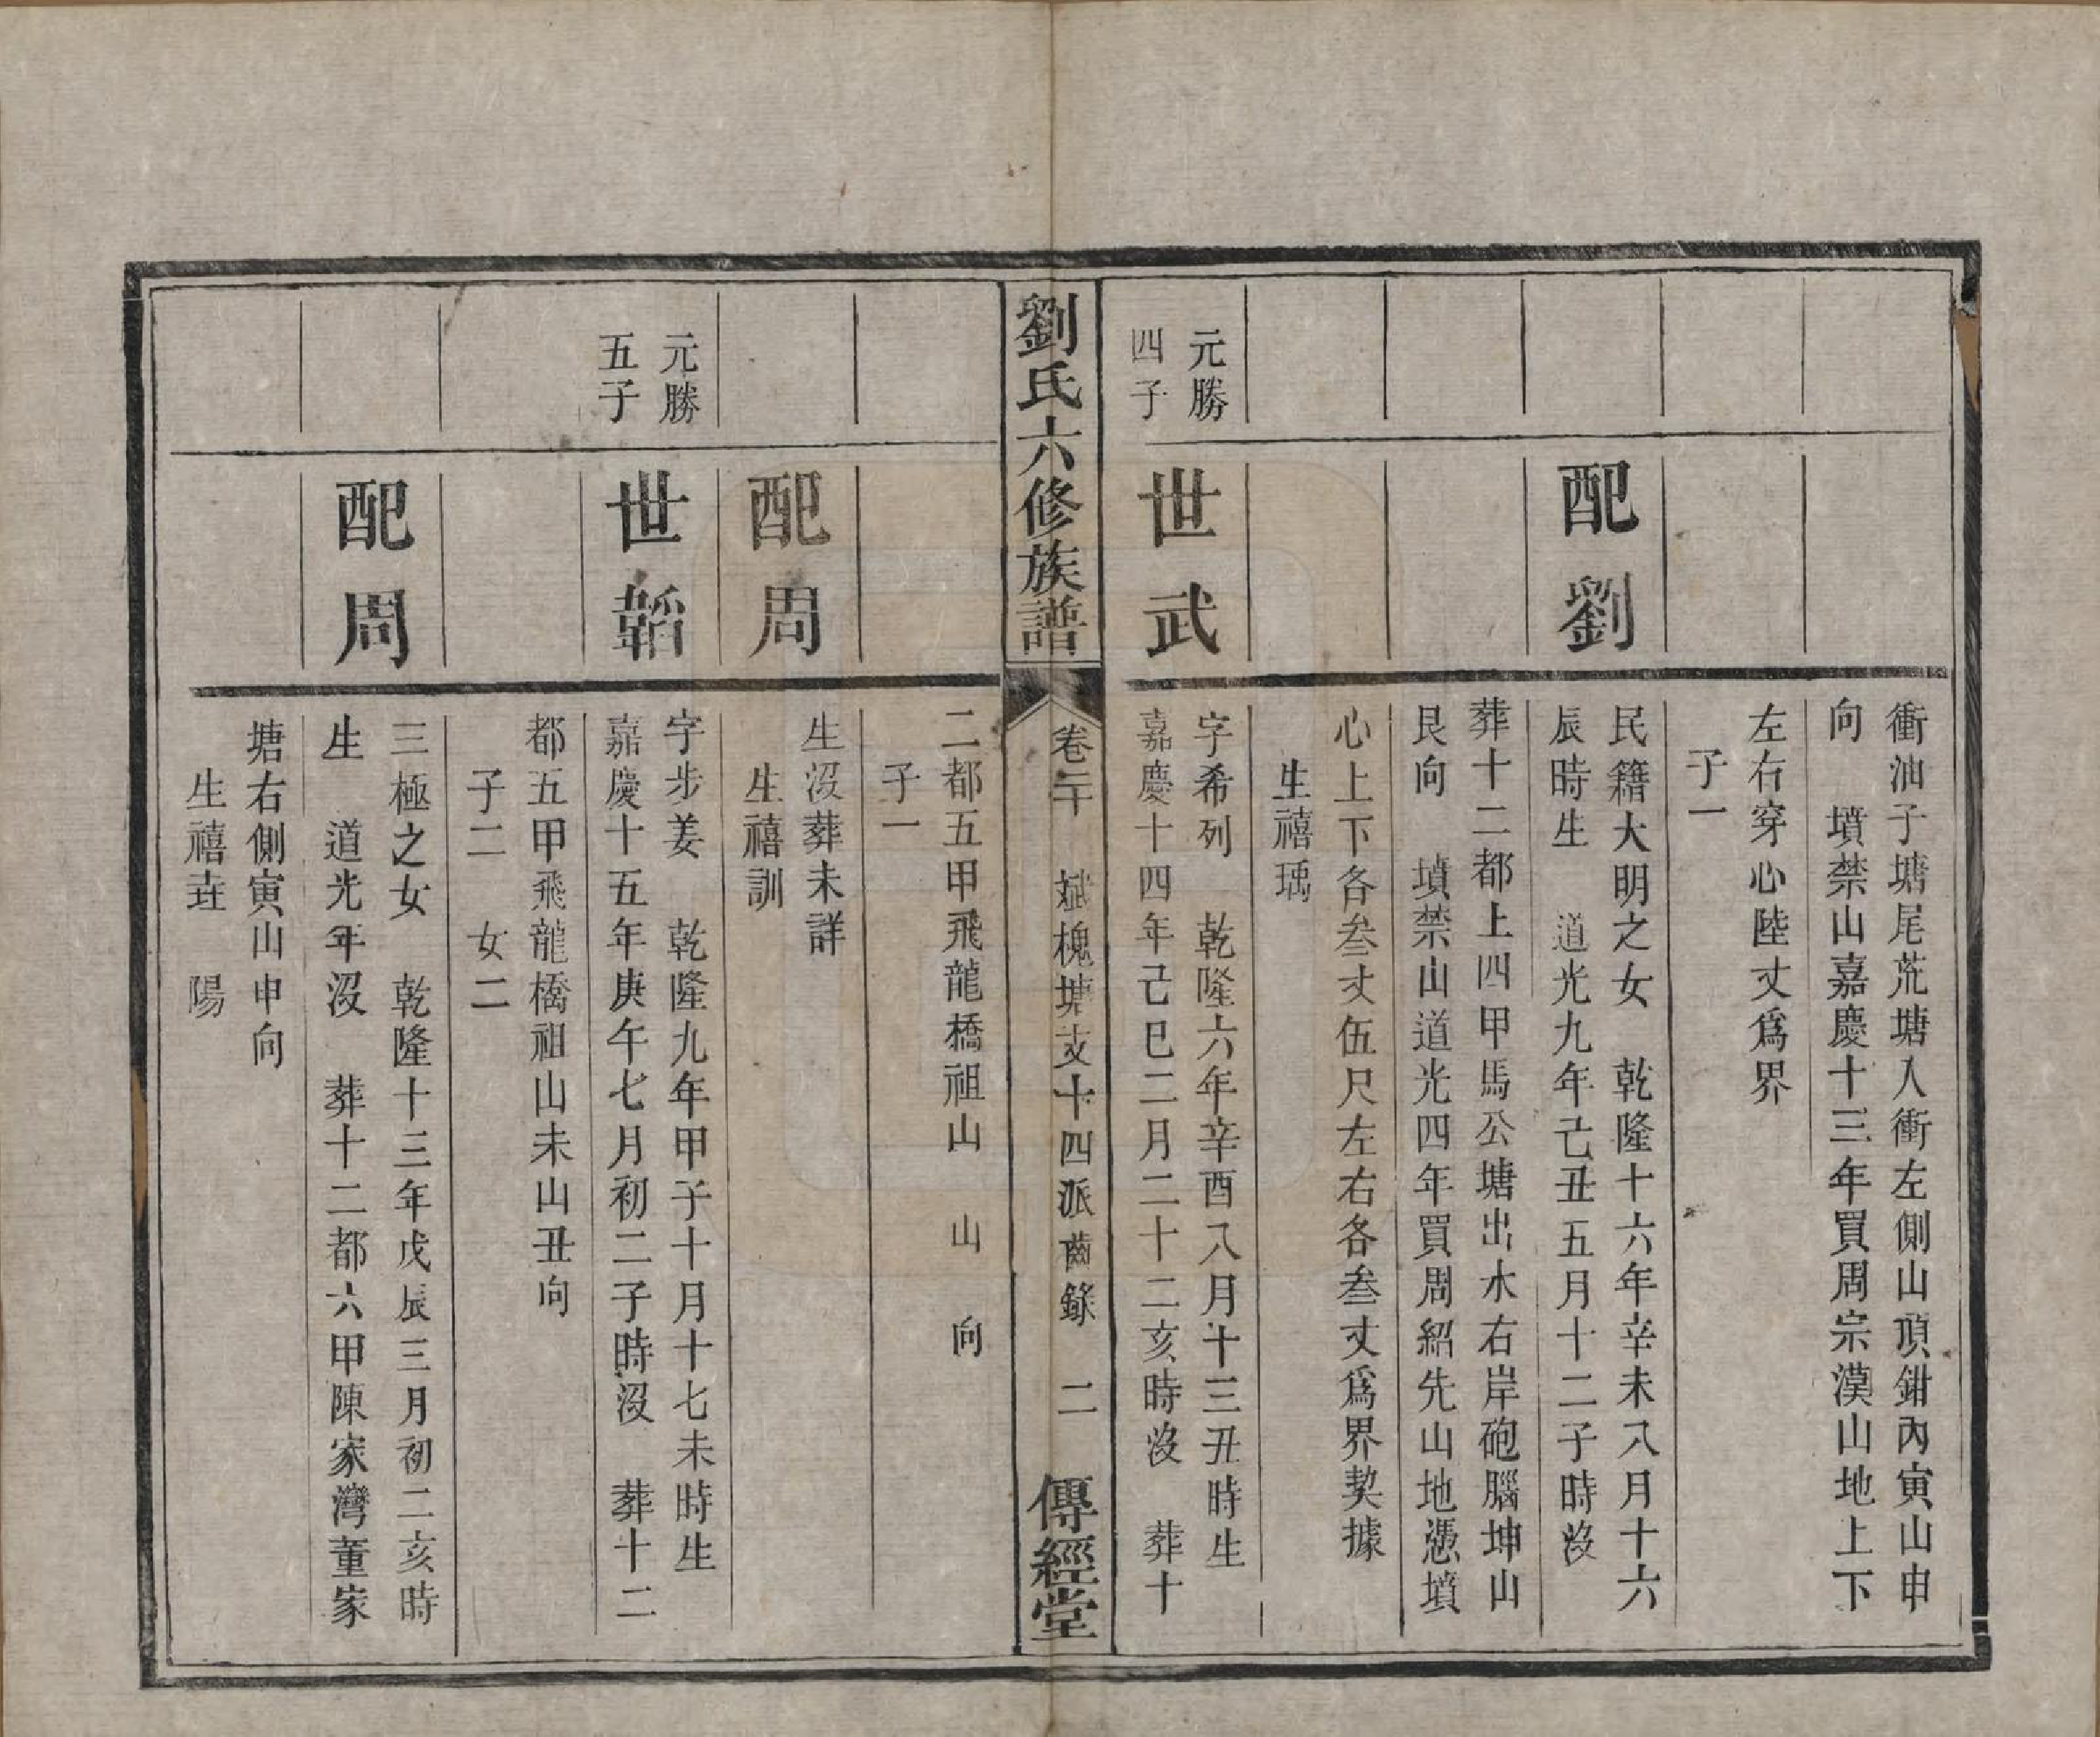 衝油子塘尾荒塘入衝左側山頂鉗內寅山申
向　墳禁山嘉慶十三年買周宗漢山地上下
左右穿心陸丈爲界
子一
配劉
民籍大明之女　乾隆十六年辛未八月十六
辰時生　道光九年己丑五月十二子時沒
葬十二都上四甲馬公塘出水右岸砲腦坤山
艮向　墳禁山道光四年買周紹先山地憑墳
心上下各叁丈伍尺左右各叁丈爲界契據
生禧瑀
元勝
四子
世武
字希列　乾隆六年辛酉八月十三丑時生
嘉慶十四年己巳二月二十二亥時沒　葬十
劉氏六修族譜
卷二十　斌槐塘支十四派齒錄　二
傳經堂
二都五甲飛龍橋祖山　山　向
子一
配周
生沒葬未詳
生禧訓
元勝
五子
世韜
字步姜　乾隆九年甲子十月十七未時生
嘉慶十五年庚午七月初二子時沒　葬十二
都五甲飛龍橋祖山未山丑向
子二　女二
配周
三極之女　乾隆十三年戊辰三月初二亥時
生　道光年沒　葬十二都六甲陳家灣董家
塘右側寅山申向
生禧垚　陽